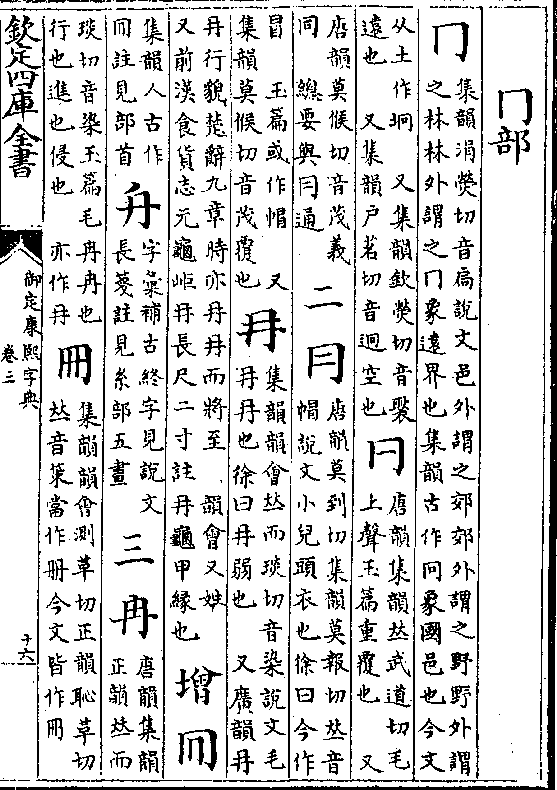 冂部
冂 集韻涓熒切音扃說文邑外謂之郊郊外謂之野野外謂
之林林外謂之冂象遠界也集韻古作冋象國邑也今文
从土作坰 又集韻欽熒切音褧
遠也 又集韻戶茗切音迥空也
𠔼 唐韻集韻𠀤武道切毛
上聲玉篇重覆也 又
唐韻莫候切音茂義
同 總要與冃通
二
冃 唐韻莫到切集韻莫報切𠀤音
帽說文小兒頭衣也徐曰今作
冒 玉篇或作帽 又
集韻莫候切音茂覆也
冄 集韻韻會𠀤而琰切音染說文毛
冄冄也徐曰冄弱也 又廣韻冄
冄行貌楚辭九章時亦冄冄而將至 韻會又姓
又前漢食貨志元龜岠冄長尺二寸註冄龜甲緣也
增
集韻人古作
冋註見部首
字彙補古終字見說文
長箋註見糸部五畫
三
冉 唐韻集韻
正韻𠀤而
琰切音染玉篇毛冉冉也
行也進也侵也 亦作冄
冊 集韻韻會測革切正韻恥革切
𠀤音策當作冊今文皆作冊
欽定四庫全書
御定康熙字典
卷三
十六